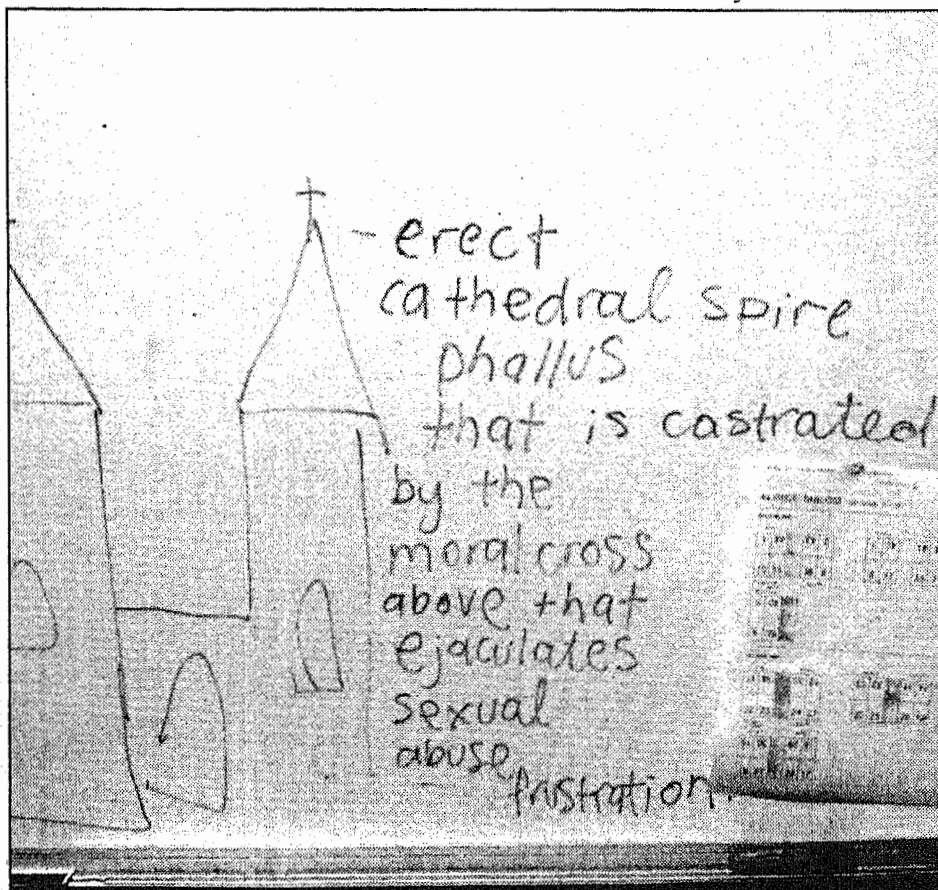 - erect
cathedral spire
phallus
that is castrated
by the
moral cross
above that
ejaculates
sexual
abuse
frustration.